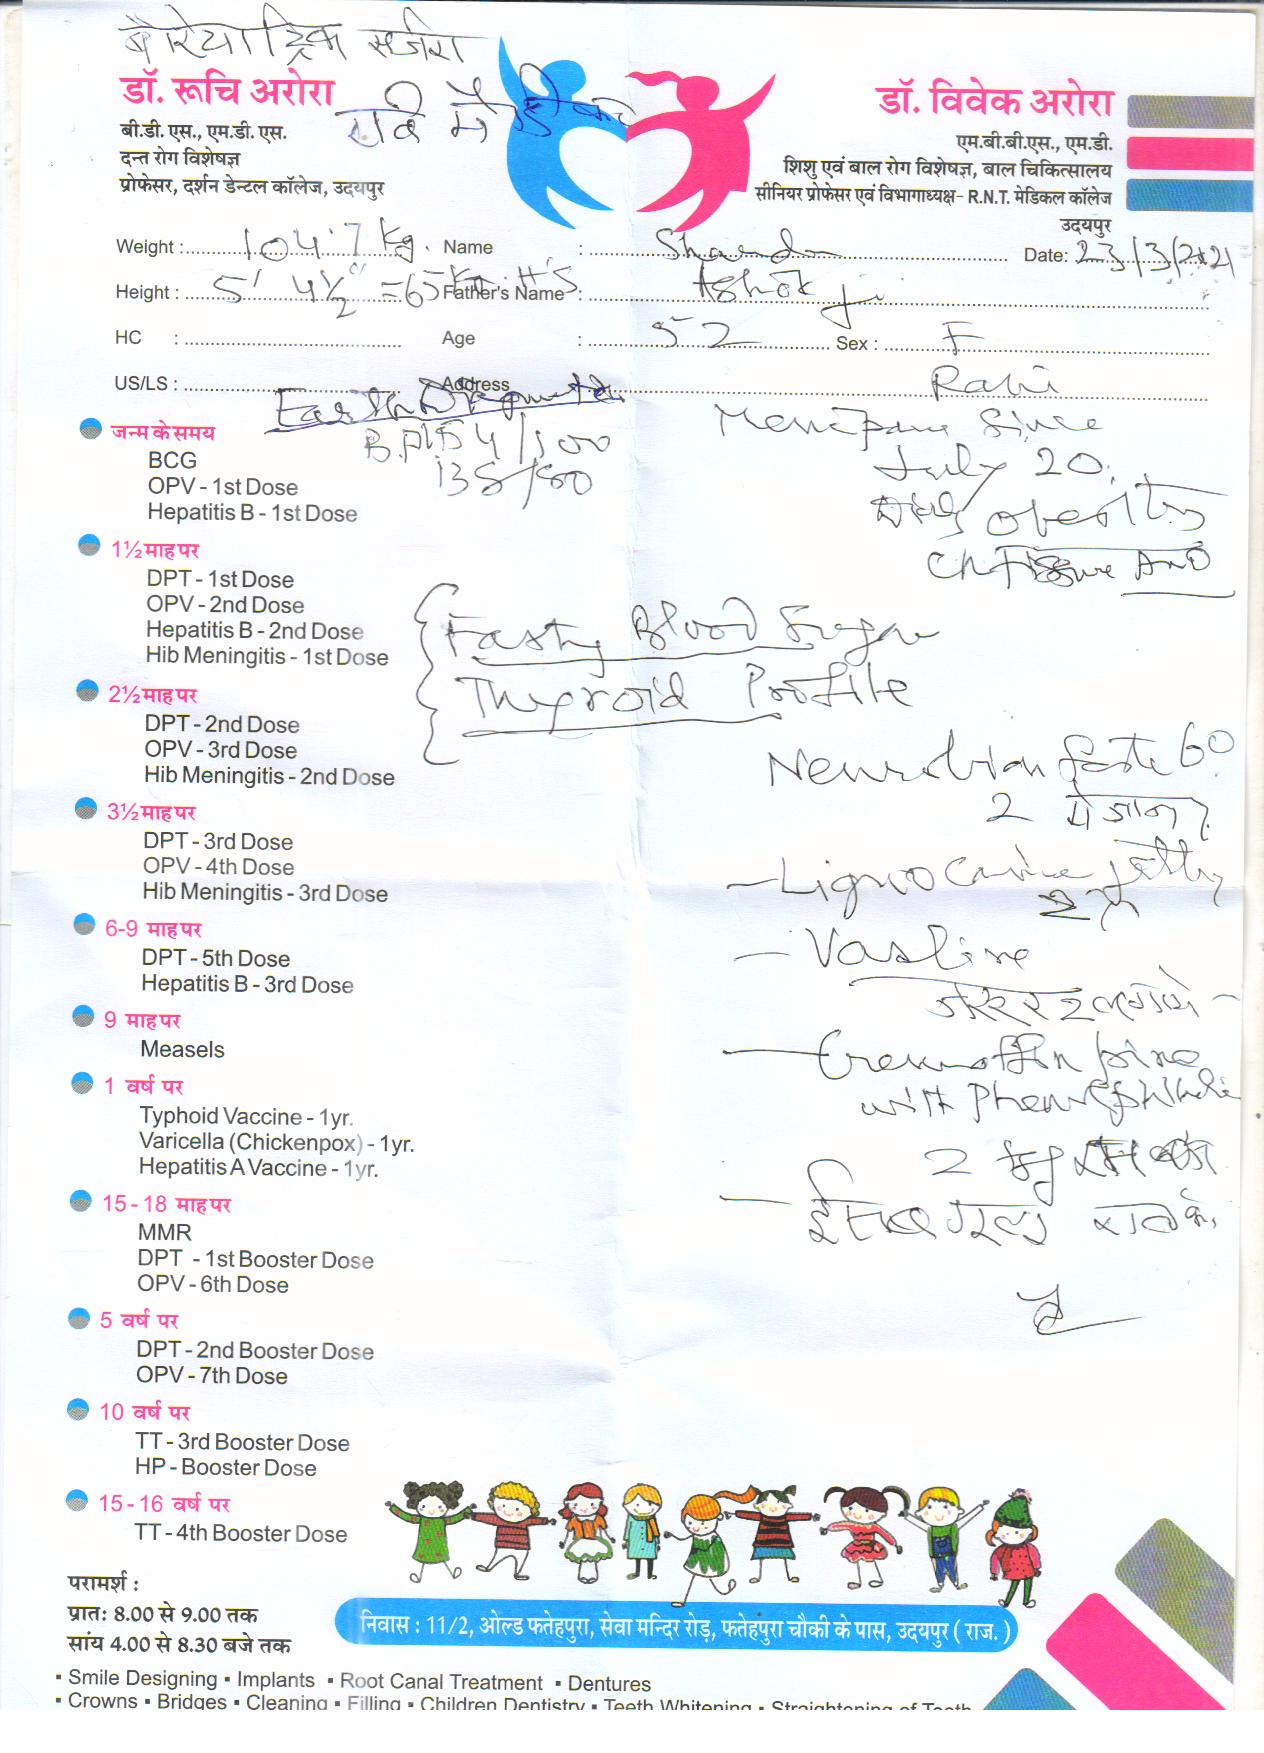 बैरियाट्रिक सर्जरी
डॉ. रूचि अरोरा
बी.डी. एस., एम.डी. एस.
दन्त रोग विशेषज्ञ
प्रोफेसर, दर्शन डेन्टल कॉलेज, उदयपुर
डॉ. विवेक अरोरा
एम.बी.बी.एस., एम.डी.
शिशु एवं बाल रोग विशेषज्ञ, बाल चिकित्सालय
सीनियर प्रोफेसर एवं विभागाध्यक्ष- R.N.T. मेडिकल कॉलेज
उदयपुर
Weight : 104.7 Kg. Name : Date: 23/3/2021
Height : 5' 4½" = 65 Kg Father's Name : Ashok ji
HC : Age : 52 Sex : F
US/LS : Address
B.P. 154/100
138/80
Since
July 20
obesity
Fasting Blood Sugar
Thyroid Profile
Neurobion forte 60
2
- Lignocaine Jelly
- Vasline
- Cremaffin
with
2
- ईसबगोल रात को
जन्म के समय
BCG
OPV - 1st Dose
Hepatitis B - 1st Dose
1½ माह पर
DPT - 1st Dose
OPV - 2nd Dose
Hepatitis B - 2nd Dose
Hib Meningitis - 1st Dose
2½ माह पर
DPT - 2nd Dose
OPV - 3rd Dose
Hib Meningitis - 2nd Dose
3½ माह पर
DPT - 3rd Dose
OPV - 4th Dose
Hib Meningitis - 3rd Dose
6-9 माह पर
DPT - 5th Dose
Hepatitis B - 3rd Dose
9 माह पर
Measels
1 वर्ष पर
Typhoid Vaccine - 1yr.
Varicella (Chickenpox) - 1yr.
Hepatitis A Vaccine - 1yr.
15 - 18 माह पर
MMR
DPT - 1st Booster Dose
OPV - 6th Dose
5 वर्ष पर
DPT - 2nd Booster Dose
OPV - 7th Dose
10 वर्ष पर
TT - 3rd Booster Dose
HP - Booster Dose
15 - 16 वर्ष पर
TT - 4th Booster Dose
परामर्श :
प्रातः 8.00 से 9.00 तक
सांय 4.00 से 8.30 बजे तक
निवास : 11/2, ओल्ड फतेहपुरा, सेवा मन्दिर रोड़, फतेहपुरा चौकी के पास, उदयपुर ( राज. )
▪ Smile Designing ▪ Implants ▪ Root Canal Treatment ▪ Dentures
▪ Crowns ▪ Bridges ▪ Cleaning ▪ Filling ▪ Children Dentistry ▪ Teeth Whitening ▪ Straightening of Teeth